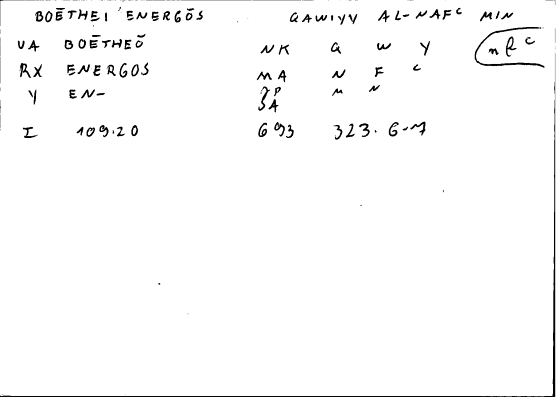 BOĒTHEI ENERGŌS QAWIYY AL-NAFᶜ MIN
VA BOĒTHEŌ NK Q W Y nfᶜ
RX ENERGOS MA N F ᶜ
Y EN- M N
SA
I 109.20 693 323.6-7